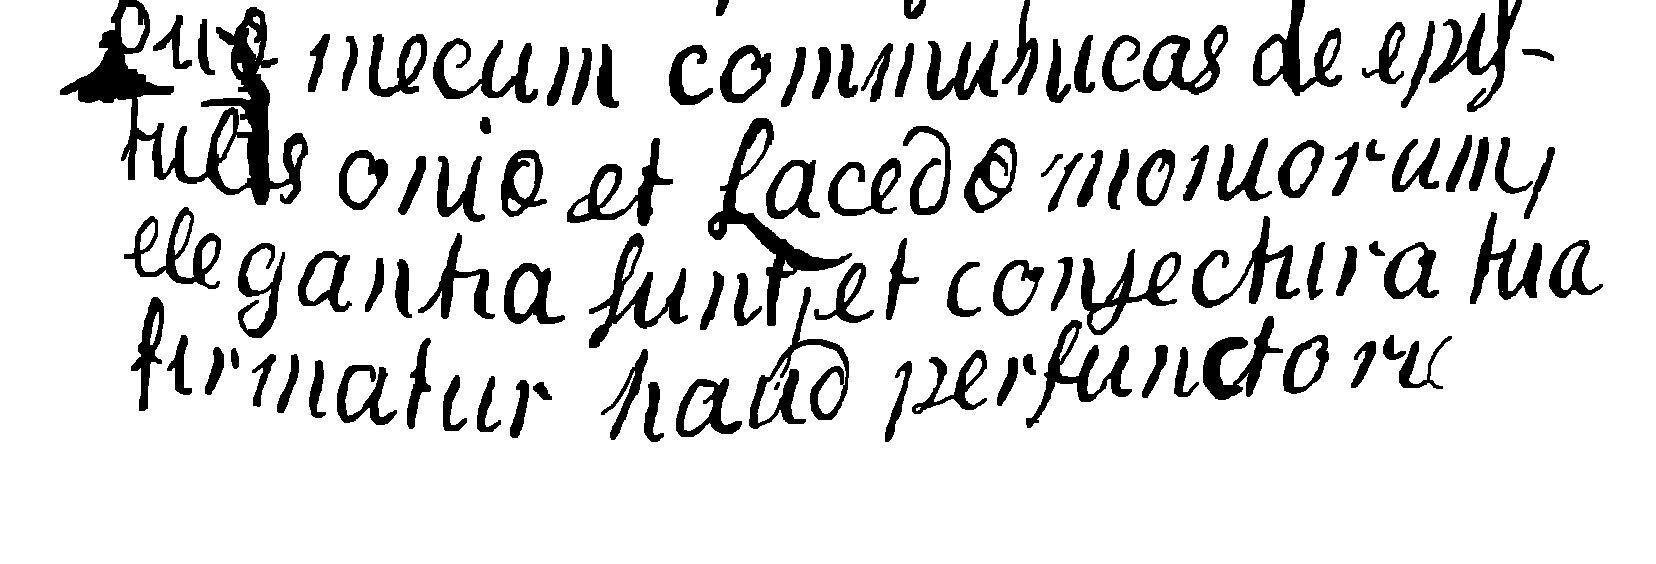 quæ mecum communicas de epis-
tulis oniæ et Lacedæmoniorum,
elegantia sunt, et conjectura tua
firmatur haud perfunctorie